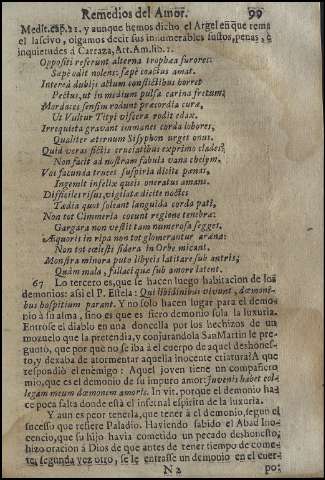 Remedios del Amor. 99
Medit. cap. 11. y aunque hemos dicho el Argel en que rema
el lascivo, oigamos decir sus innumerables sustos, penas, è
inquietudes à Carraza, Act. Am. lib. 1.
Oppositi referunt alterna trophæa furores:
Sæpè odit nolens: sæpè coactus amat.
Intereà dubiis actum conflictibus horret
Pectus, ut in medium pulsa carina fretum;
Mordaces sensim rodunt præcordia curæ,
Ut Vultur Tityi viscera rodit edax.
Irrequieta gravant immanes corda labores,
Qualiter æternum Sisyphon urget onus.
Quid veras fictis cruciatibus exprimo clades?
Non facit ad nostram fabula vana cheļym.
Vos facunda truces suspiria dicite pœnas,
Ingemit infelix queis oneratus amans.
Difficiles risus, vigilatæ dicite noctes
Tædia quot soleant languida corda pati,
Non tot Cimmeria coeunt regione tenebræ:
Gargara non vestit tam numerosa seges,
Æquoris in ripa non tot glomerantur arenæ:
Non tot cœlesti sidera in Orbe micant,
Monstra minora puto libycis latitare sub antris;
Quàm mala, fallaci quæ sub amore latent.
67 Lo tercero es, que se hacen luego habitacion de los
demonios: assi el P. Estela: Qui libidinibus vivunt, dæmoni-
bus hospitium parant. Y no solo hacen lugar para el demo-
nio à la alma, sino es que es fiero demonio sola la luxuria.
Entrose el diablo en una doncella por los hechizos de un
mozuelo que la pretendia, y conjurandola San Martin le pre-
guntò, que por què no se iba à el cuerpo de aquel deshones-
to, y dexaba de atormentar aquella inocente criatura? A que
respondiò el enemigo: Aquel joven tiene un compañero
mio, que es el demonio de su impuro amor: Juvenis habet col-
legam meum dæmonem amoris. In vit. porque el demonio ha-
ce poca falta donde està el infernal espiritu de la luxuria.
Y aun es peor tenerla, que tener à el demonio, segun el
sucesso que refiere Paladio. Haviendo sabido el Abad Ino-
cencio, que su hijo havia cometido un pecado deshonesto,
hizo oracion à Dios de que antes de tener tiempo de come-
ter, segunda vez otro, se le entrasse un demonio en el cuer-
N 2 po: